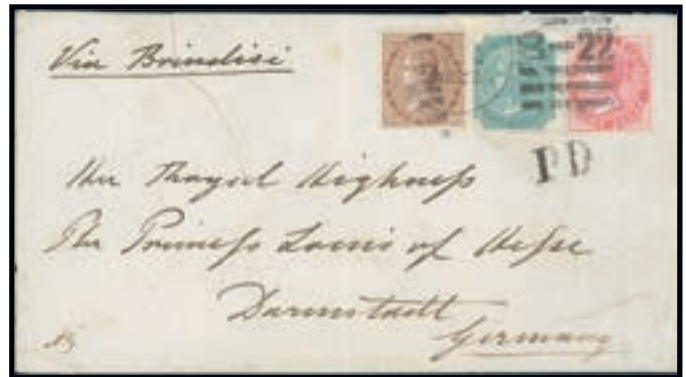 Via Brindisi
22
PD
Her Royal Highness
The Princess Louis of Hesse
Darmstadt
Germany